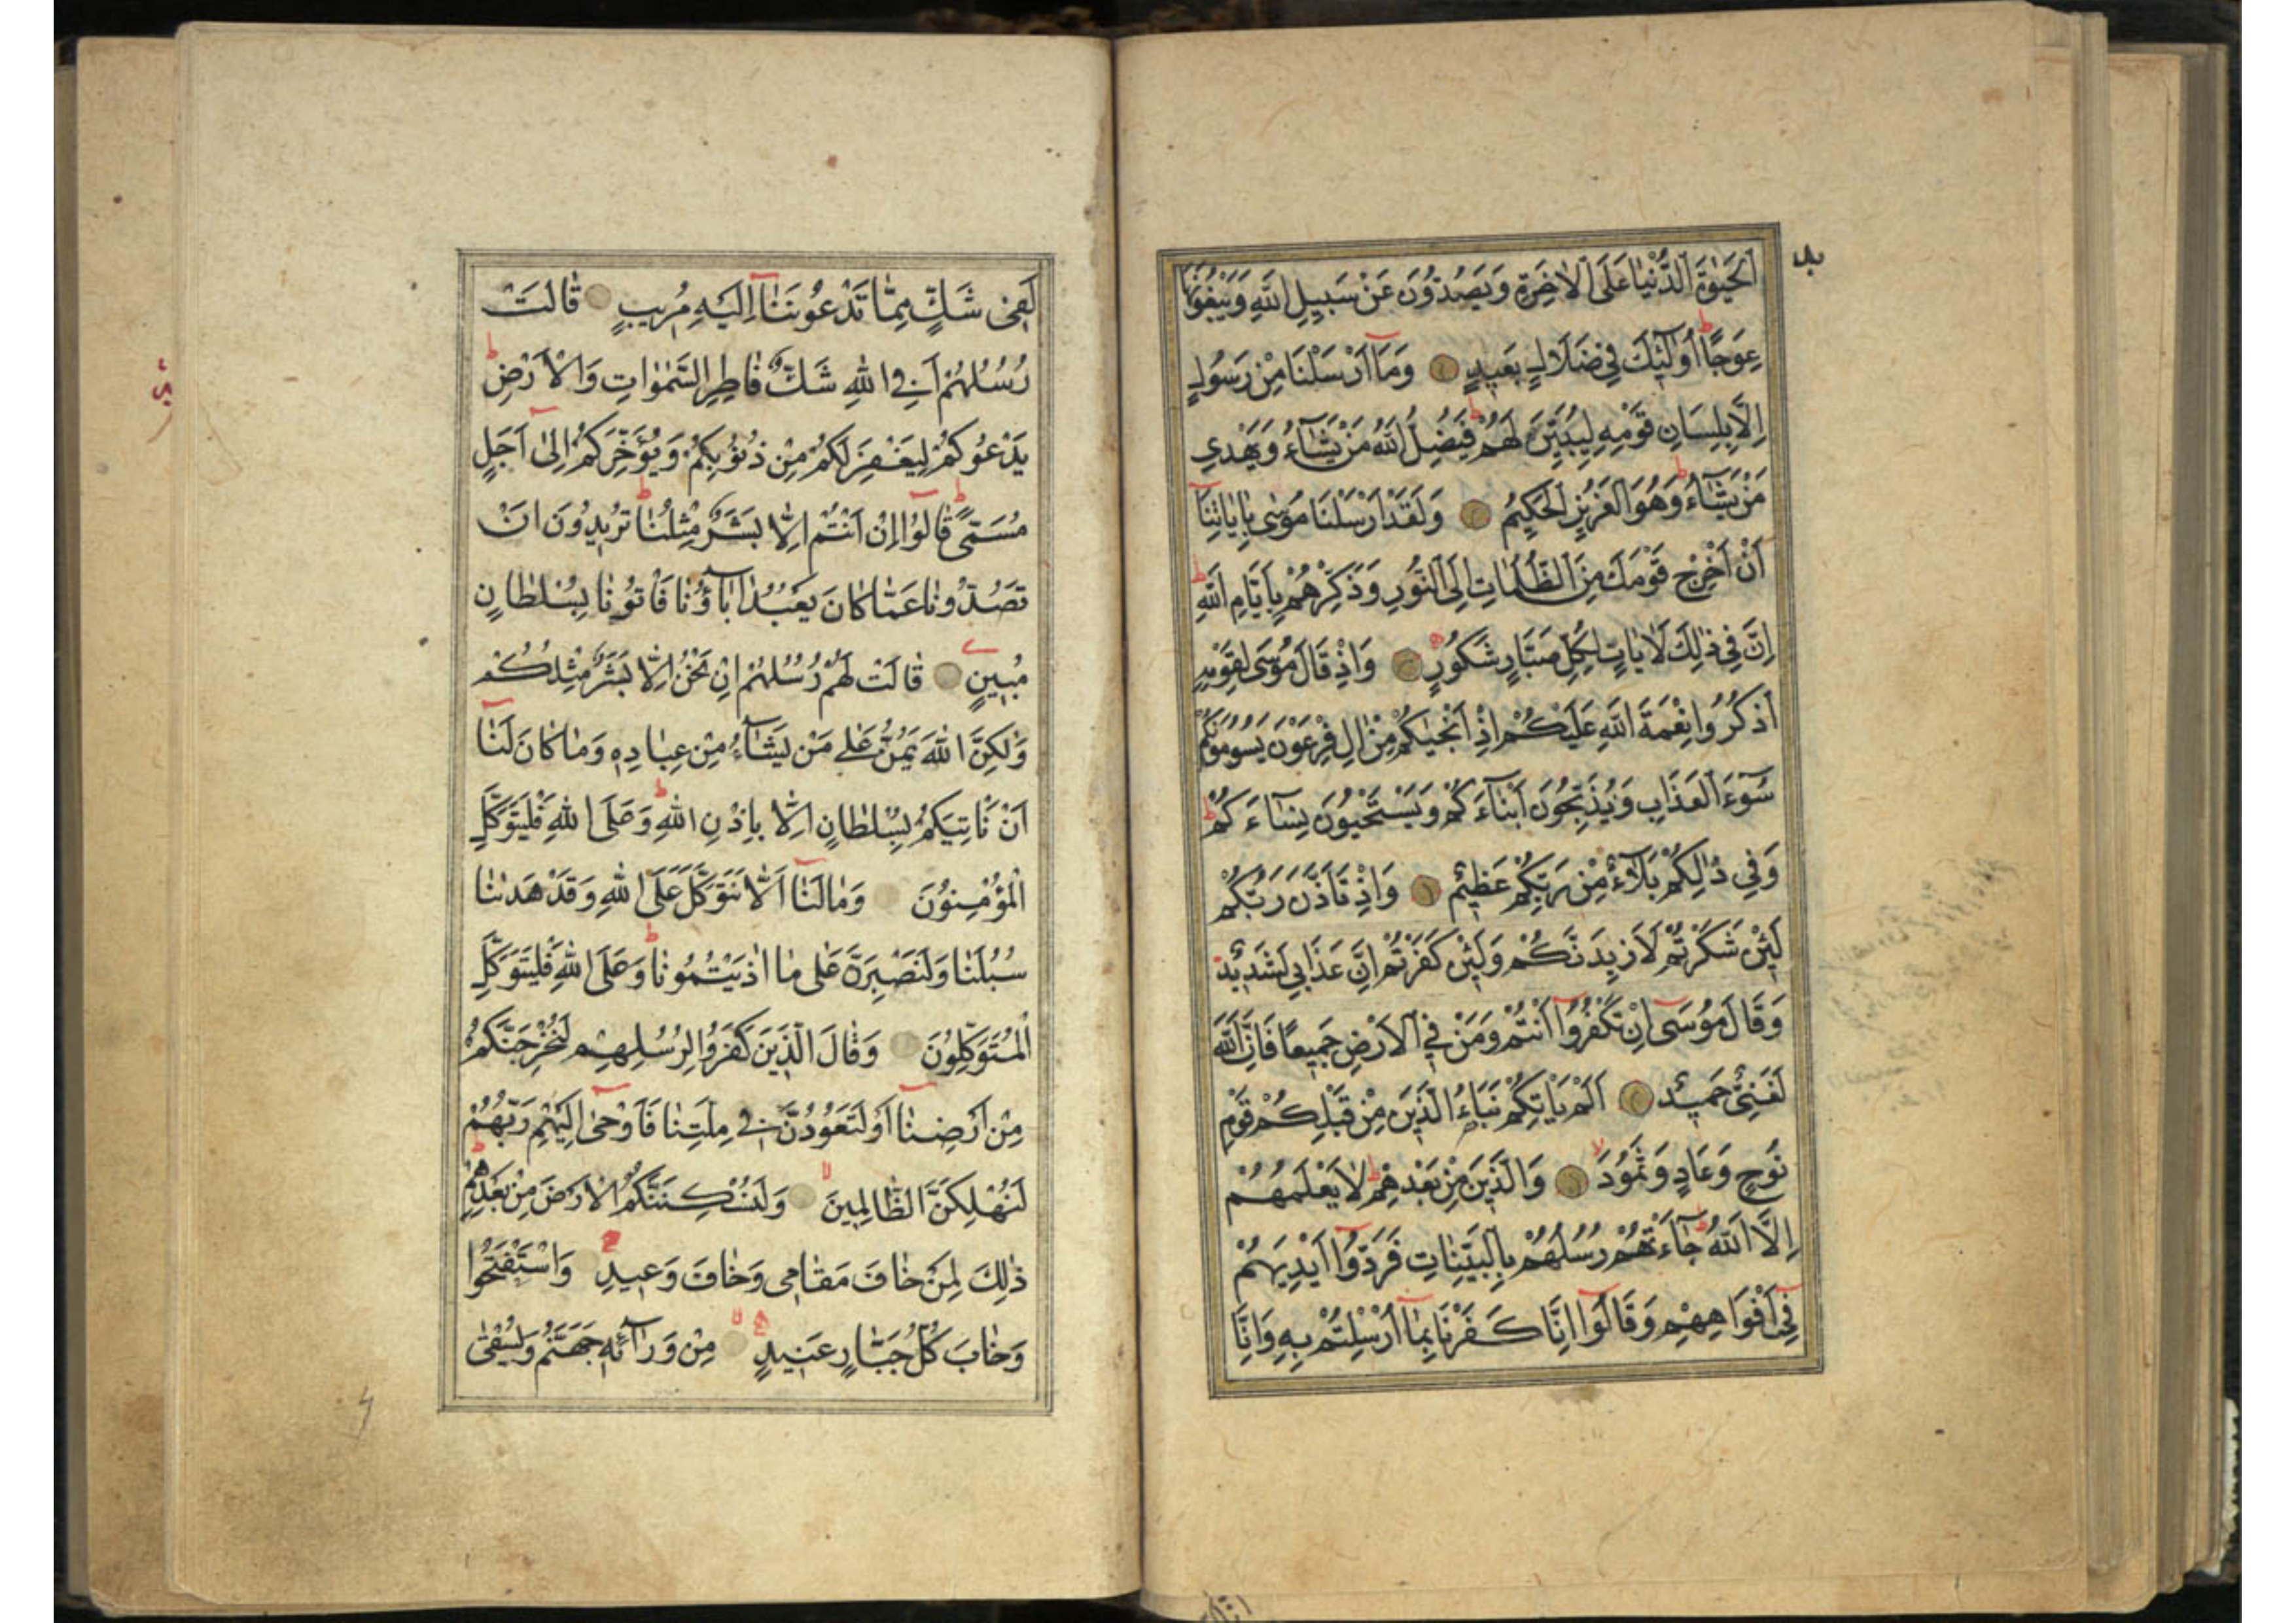 اَلْحَيٰوةَ الدُّنْيَا عَلَى الْاٰخِرَةِ وَيَصُدُّوْنَ عَنْ سَبِيلِ اللّٰهِ وَيَبْغُونَهَا
عِوَجًا اُولٰٓئِكَ فِي ضَلَالٍ بَعِيدٍ وَمَآ اَرْسَلْنَا مِنْ رَسُولٍ
اِلَّا بِلِسَانِ قَوْمِهِ لِيُبَيِّنَ لَهُمْ فَيُضِلُّ اللّٰهُ مَنْ يَشَآءُ وَيَهْدِي
مَنْ يَشَآءُ وَهُوَ الْعَزِيزُ الْحَكِيمُ وَلَقَدْ اَرْسَلْنَا مُوسٰى بِاٰيَاتِنَآ
اَنْ اَخْرِجْ قَوْمَكَ مِنَ الظُّلُمَاتِ اِلَى النُّورِ وَذَكِّرْهُمْ بِاَيَّامِ اللّٰهِ
اِنَّ فِي ذٰلِكَ لَاٰيَاتٍ لِكُلِّ صَبَّارٍ شَكُورٍ وَاِذْ قَالَ مُوسٰى لِقَوْمِهِ
اذْكُرُوا نِعْمَةَ اللّٰهِ عَلَيْكُمْ اِذْ اَنْجٰيكُمْ مِنْ اٰلِ فِرْعَوْنَ يَسُومُونَكُمْ
سُوٓءَ الْعَذَابِ وَيُذَبِّحُونَ اَبْنَآءَكُمْ وَيَسْتَحْيُونَ نِسَآءَكُمْ
وَفِي ذٰلِكُمْ بَلَآءٌ مِنْ رَبِّكُمْ عَظِيمٌ وَاِذْ تَاَذَّنَ رَبُّكُمْ
لَئِنْ شَكَرْتُمْ لَاَزِيدَنَّكُمْ وَلَئِنْ كَفَرْتُمْ اِنَّ عَذَابِي لَشَدِيدٌ
وَقَالَ مُوسٰٓى اِنْ تَكْفُرُوٓا اَنْتُمْ وَمَنْ فِي الْاَرْضِ جَمِيعًا فَاِنَّ اللّٰهَ
لَغَنِيٌّ حَمِيدٌ اَلَمْ يَاْتِكُمْ نَبَاءُ الَّذِينَ مِنْ قَبْلِكُمْ قَوْمِ
نُوحٍ وَعَادٍ وَثَمُودَ وَالَّذِينَ مِنْ بَعْدِهِمْ لَا يَعْلَمُهُمْ
اِلَّا اللّٰهُ جَآءَتْهُمْ رُسُلُهُمْ بِالْبَيِّنَاتِ فَرَدُّوٓا اَيْدِيَهُمْ
فِيٓ اَفْوَاهِهِمْ وَقَالُوٓا اِنَّا كَفَرْنَا بِمَآ اُرْسِلْتُمْ بِهِ وَاِنَّا
لَفِي شَكٍّ مِمَّا تَدْعُونَنَآ اِلَيْهِ مُرِيبٍ قَالَتْ
رُسُلُهُمْ اَفِي اللّٰهِ شَكٌّ فَاطِرِ السَّمٰوَاتِ وَالْاَرْضِ
يَدْعُوكُمْ لِيَغْفِرَ لَكُمْ مِنْ ذُنُوبِكُمْ وَيُؤَخِّرَكُمْ اِلٰٓى اَجَلٍ
مُسَمًّى قَالُوٓا اِنْ اَنْتُمْ اِلَّا بَشَرٌ مِثْلُنَا تُرِيدُونَ اَنْ
تَصُدُّونَا عَمَّا كَانَ يَعْبُدُ اٰبَآؤُنَا فَاْتُونَا بِسُلْطَانٍ
مُبِينٍ قَالَتْ لَهُمْ رُسُلُهُمْ اِنْ نَحْنُ اِلَّا بَشَرٌ مِثْلُكُمْ
وَلٰكِنَّ اللّٰهَ يَمُنُّ عَلٰى مَنْ يَشَآءُ مِنْ عِبَادِهِ وَمَا كَانَ لَنَآ
اَنْ نَاْتِيَكُمْ بِسُلْطَانٍ اِلَّا بِاِذْنِ اللّٰهِ وَعَلَى اللّٰهِ فَلْيَتَوَكَّلِ
الْمُؤْمِنُونَ وَمَا لَنَآ اَلَّا نَتَوَكَّلَ عَلَى اللّٰهِ وَقَدْ هَدٰينَا
سُبُلَنَا وَلَنَصْبِرَنَّ عَلٰى مَا اٰذَيْتُمُونَا وَعَلَى اللّٰهِ فَلْيَتَوَكَّلِ
الْمُتَوَكِّلُونَ وَقَالَ الَّذِينَ كَفَرُوا لِرُسُلِهِمْ لَنُخْرِجَنَّكُمْ
مِنْ اَرْضِنَآ اَوْ لَتَعُودُنَّ فِي مِلَّتِنَا فَاَوْحٰٓى اِلَيْهِمْ رَبُّهُمْ
لَنُهْلِكَنَّ الظَّالِمِينَ وَلَنُسْكِنَنَّكُمُ الْاَرْضَ مِنْ بَعْدِهِمْ
ذٰلِكَ لِمَنْ خَافَ مَقَامِي وَخَافَ وَعِيدِ وَاسْتَفْتَحُوا
وَخَابَ كُلُّ جَبَّارٍ عَنِيدٍ مِنْ وَرَآئِهِ جَهَنَّمُ وَيُسْقٰى